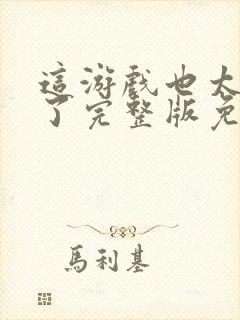 這游戲也太
了完整版免
馬利基